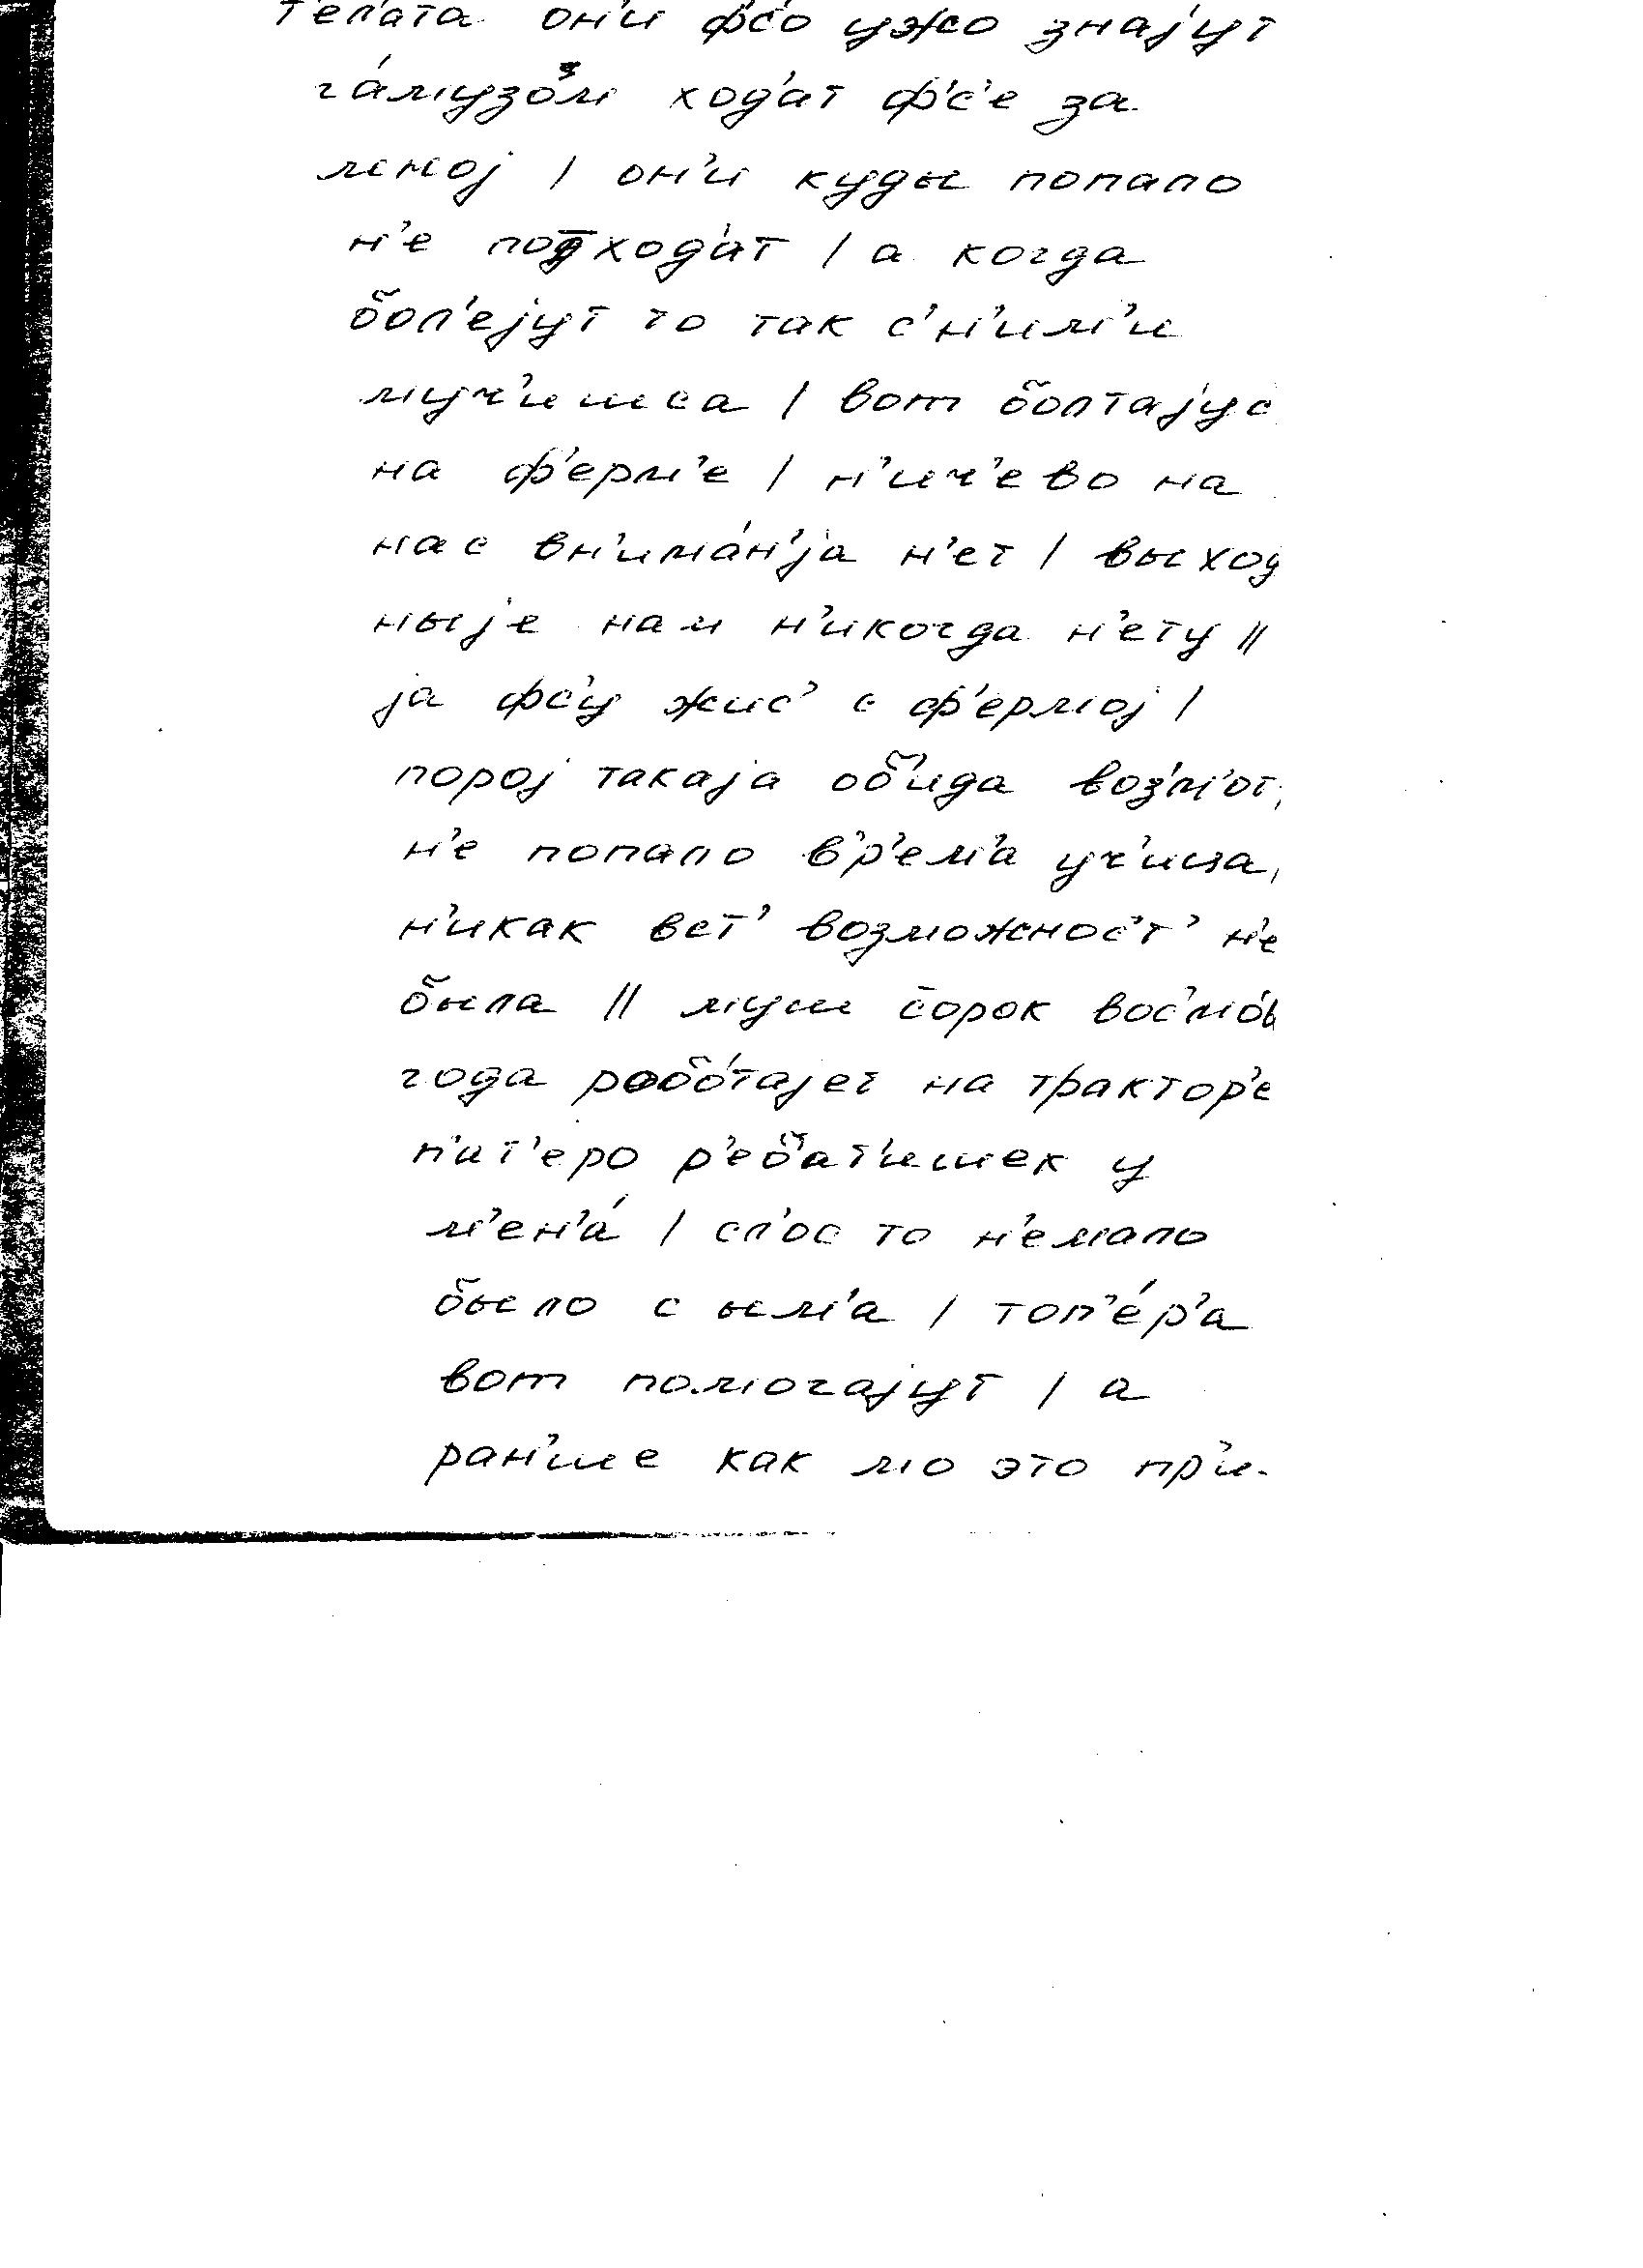 т'ел'ата он'и ф'с'о ужо знајут
га́музо́м ход'ат ф'с'е за
мној / он'и куды попало
н'е потход'ат / а когда
бол'ејут то так с'н'им'и
муч'ишса / вот болтајус
на ф'ерм'е / н'ич'ево на
нас вн'има́н'ја н'ет / выход
ныје нам н'икогда н'ету //
ја фс'у жис' с ф'ермој /
порој такаја об'ида воз'м'от,
н'е попало в'р'ем'а уч'ица,
н'икак вет' возможнос'т' н'е
была // муш сорок вос'мо́в
года робо́тајет на трактор'е
п'ит'еро р'еб'ат'ишек у
м'ен'а́ / сл'ос то н'емало
было с ым'а / топ'е́р'а
вот помогајут / а
ран'ше как мо это пр'и-